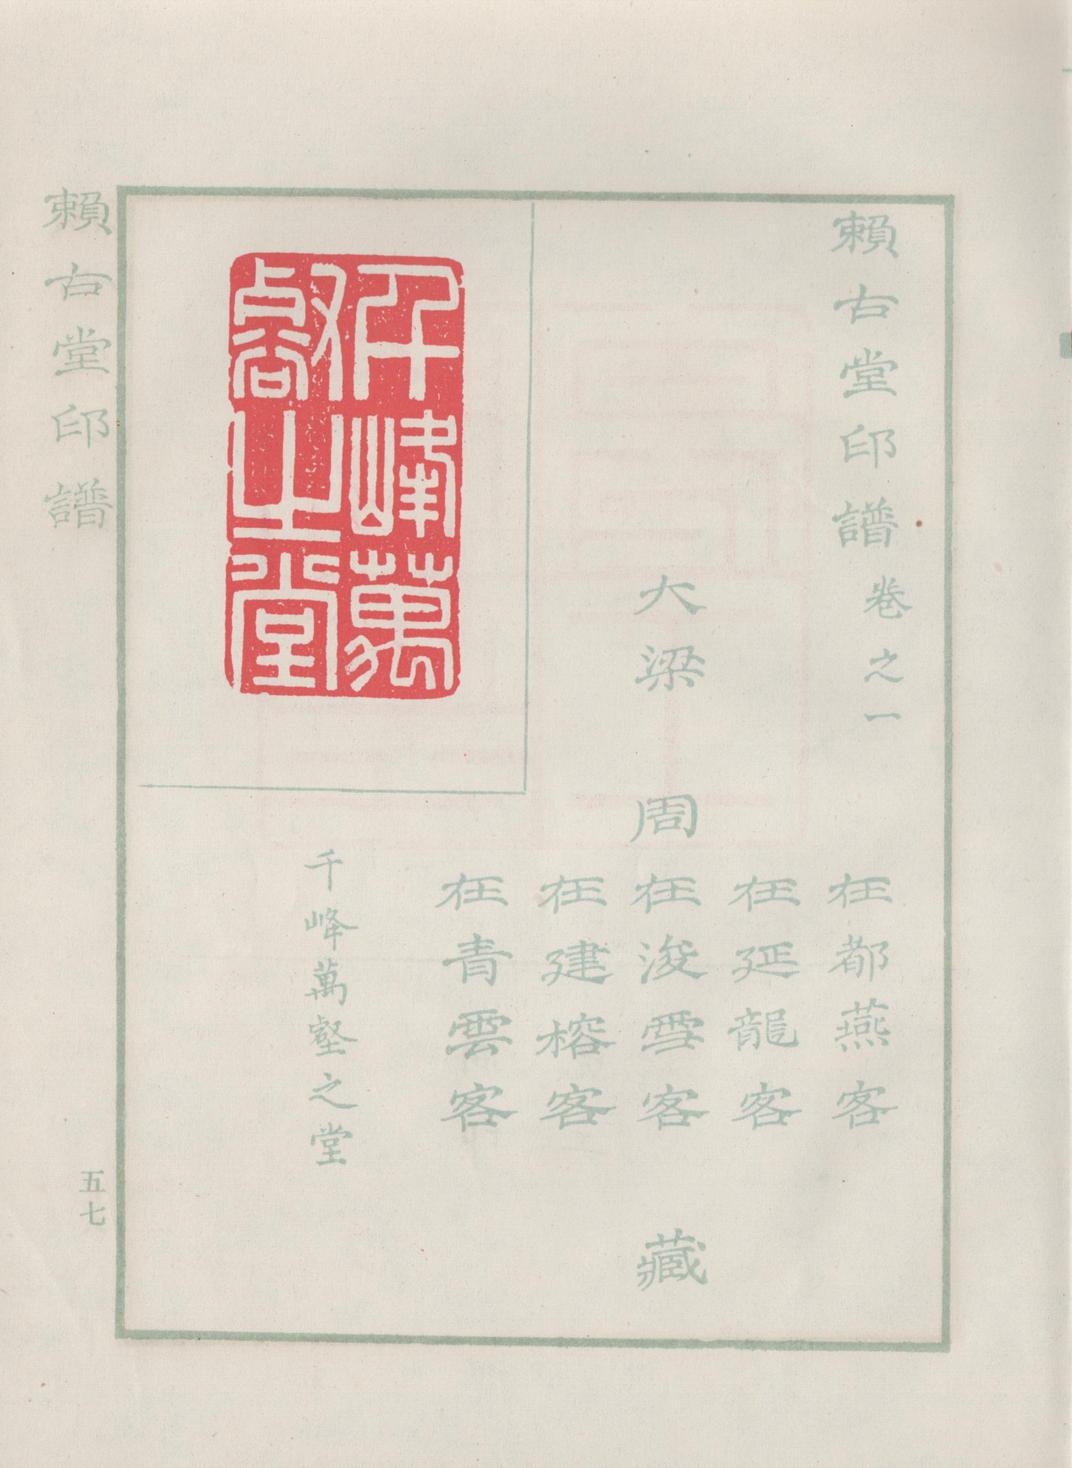 賴古堂印譜卷之一
大梁
周
在都燕客
在延龍客
在浚雪客
在建榕客
在青雲客
藏
千峰萬壑之堂
千峰萬
壑之堂
賴古堂印譜
五七